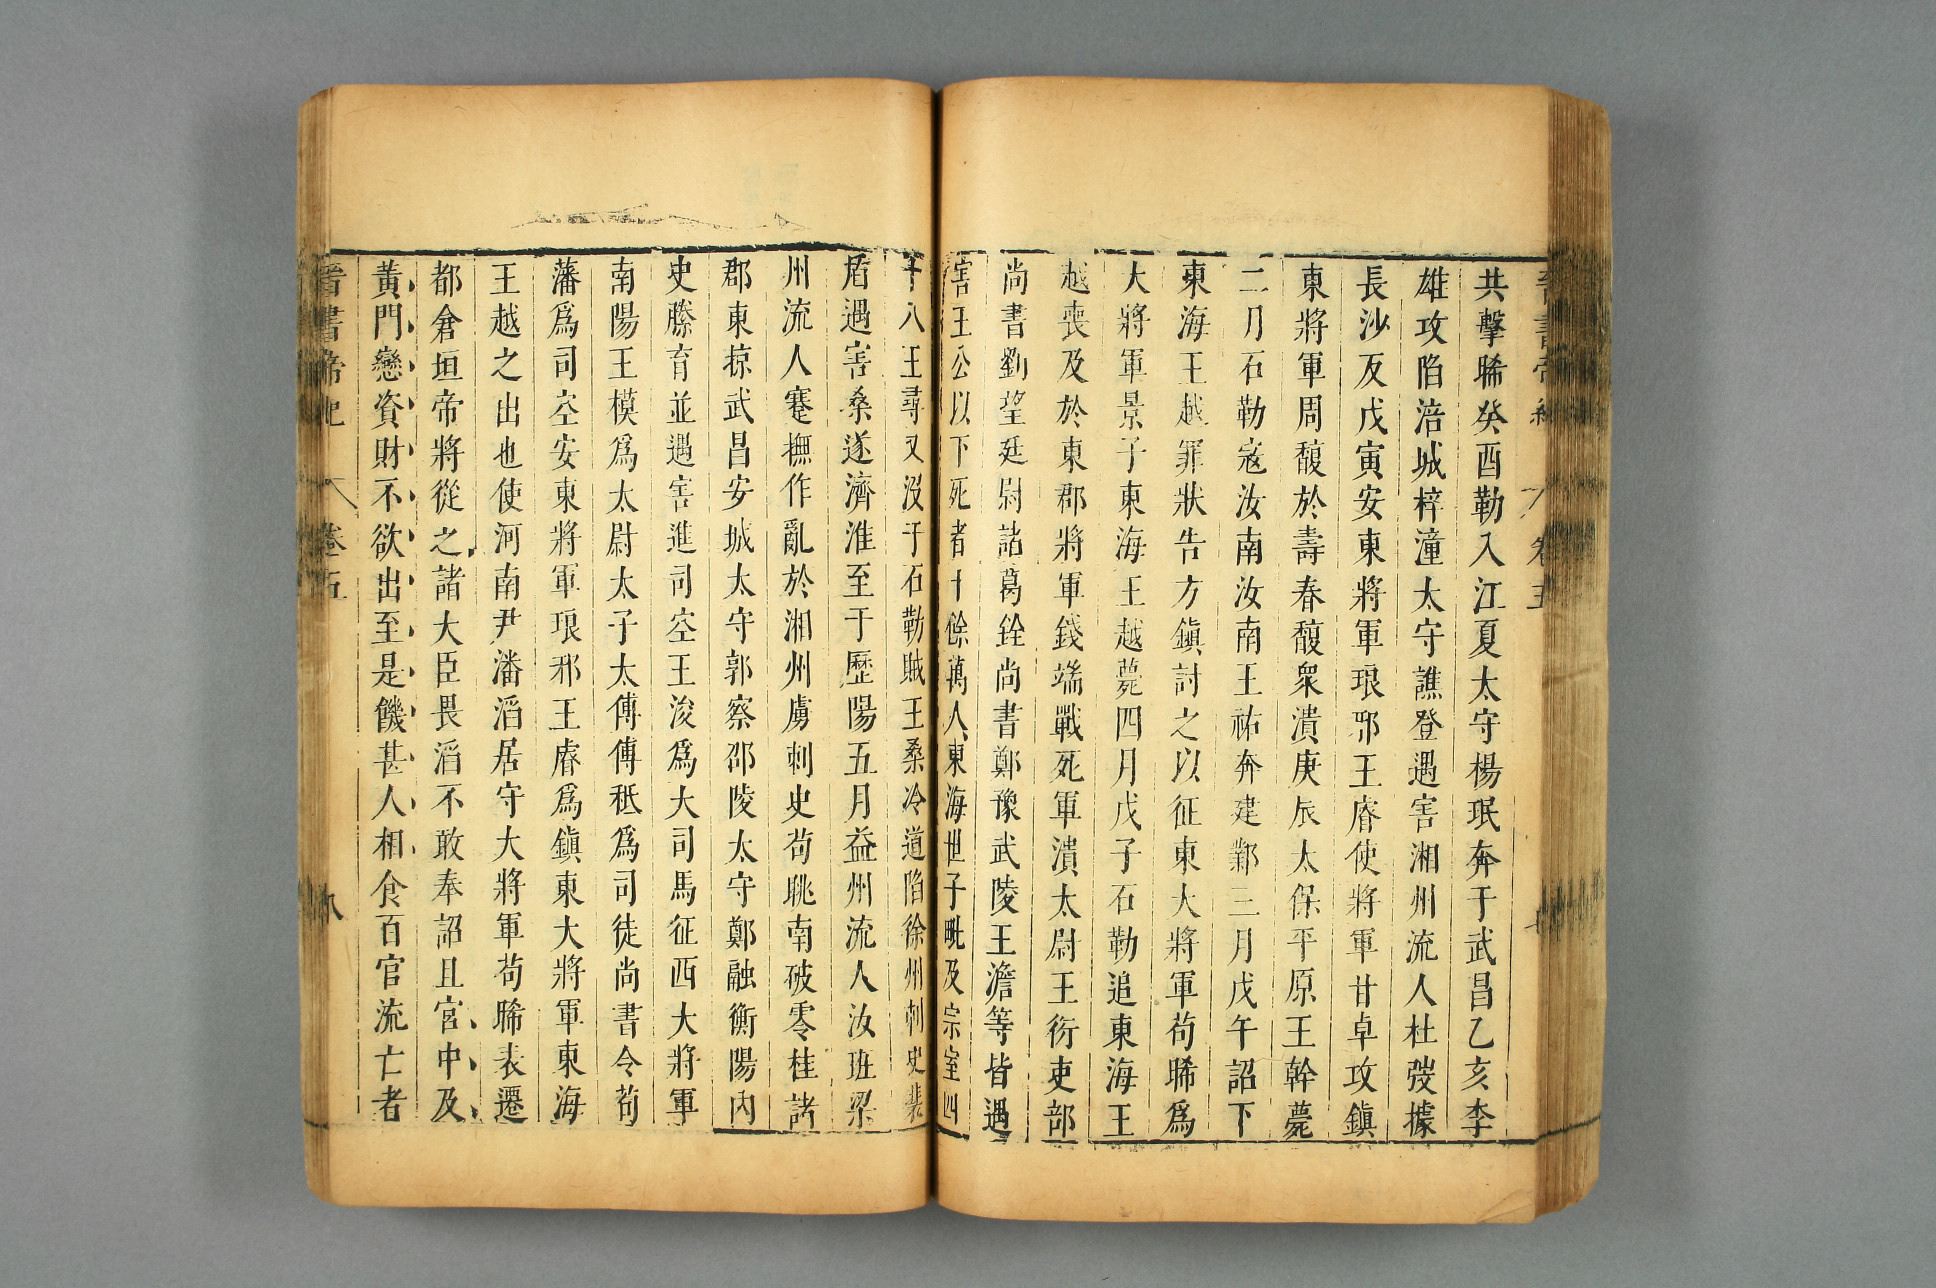 晉書帝紀 卷五
共擊晞癸酉勒入江夏太守楊珉奔于武昌乙亥李
雄攻陷涪城梓潼太守譙登遇害湘州流人杜弢據
長沙反戊寅安東將軍琅邪王睿使將軍甘卓攻鎮
東將軍周馥於壽春馥衆潰庚辰太保平原王幹薨
二月石勒寇汝南汝南王祐奔建鄴三月戊午詔下
東海王越罪狀告方鎮討之以征東大將軍苟晞爲
大將軍景子東海王越薨四月戊子石勒追東海王
越喪及於東郡將軍錢端戰死軍潰太尉王衍吏部
尚書劉望廷尉諸葛銓尚書鄭豫武陵王澹等皆遇
害王公以下死者十餘萬人東海世子毗及宗室四
十八王尋又沒于石勒賊王桑冷道陷徐州刺史裴
盾遇害桑遂濟淮至于歷陽五月益州流人汝班梁
州流人蹇撫作亂於湘州虜刺史苟眺南破零桂諸
郡東掠武昌安城太守郭察邵陵太守鄭融衡陽內
史滕育並遇害進司空王浚爲大司馬征西大將軍
南陽王模爲太尉太子太傅傅祗爲司徒尚書令荀
藩爲司空安東將軍琅邪王睿爲鎮東大將軍東海
王越之出也使河南尹潘滔居守大將軍苟晞表遷
都倉垣帝將從之諸大臣畏滔不敢奉詔且宮中及
黃門戀資財不欲出至是饑甚人相食百官流亡者
晉書帝紀 卷五 八